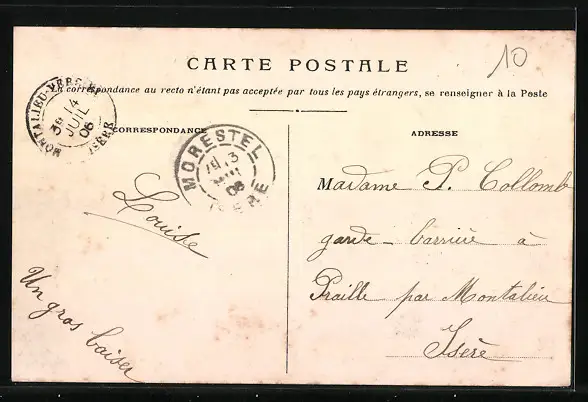 10
CARTE POSTALE
La correspondance au recto n'étant pas acceptée par tous les pays étrangers, se renseigner à la Poste
MONTALIEU-VERCIEU
3E 14
JUIL
06
ISERE
CORRESPONDANCE
ADRESSE
MORESTEL
13
06
ISERE
Louise
Un gros baiser
Madame P. Collomb
garde-barrière à
Praille par Montalieu
Isère